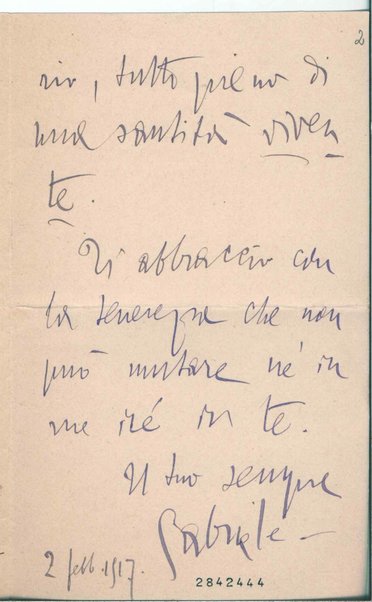 2
rio, tutto pieno di
una santità viven
te.
Ti abbraccio con
la tenerezza che non
può mutare né in
me né in te.
Il tuo sempre
Gabriele
2 febb. 1917.
2842444